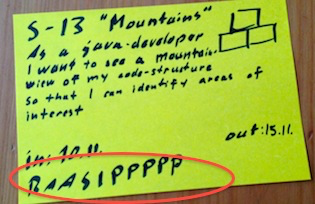 S-13 "Mountains"
As a java-developer
I want to see a Mountain-
view of my code-structure
So that I can identify areas of
interest
in: 10.11.
out: 15.11.
RAASIPPPPP